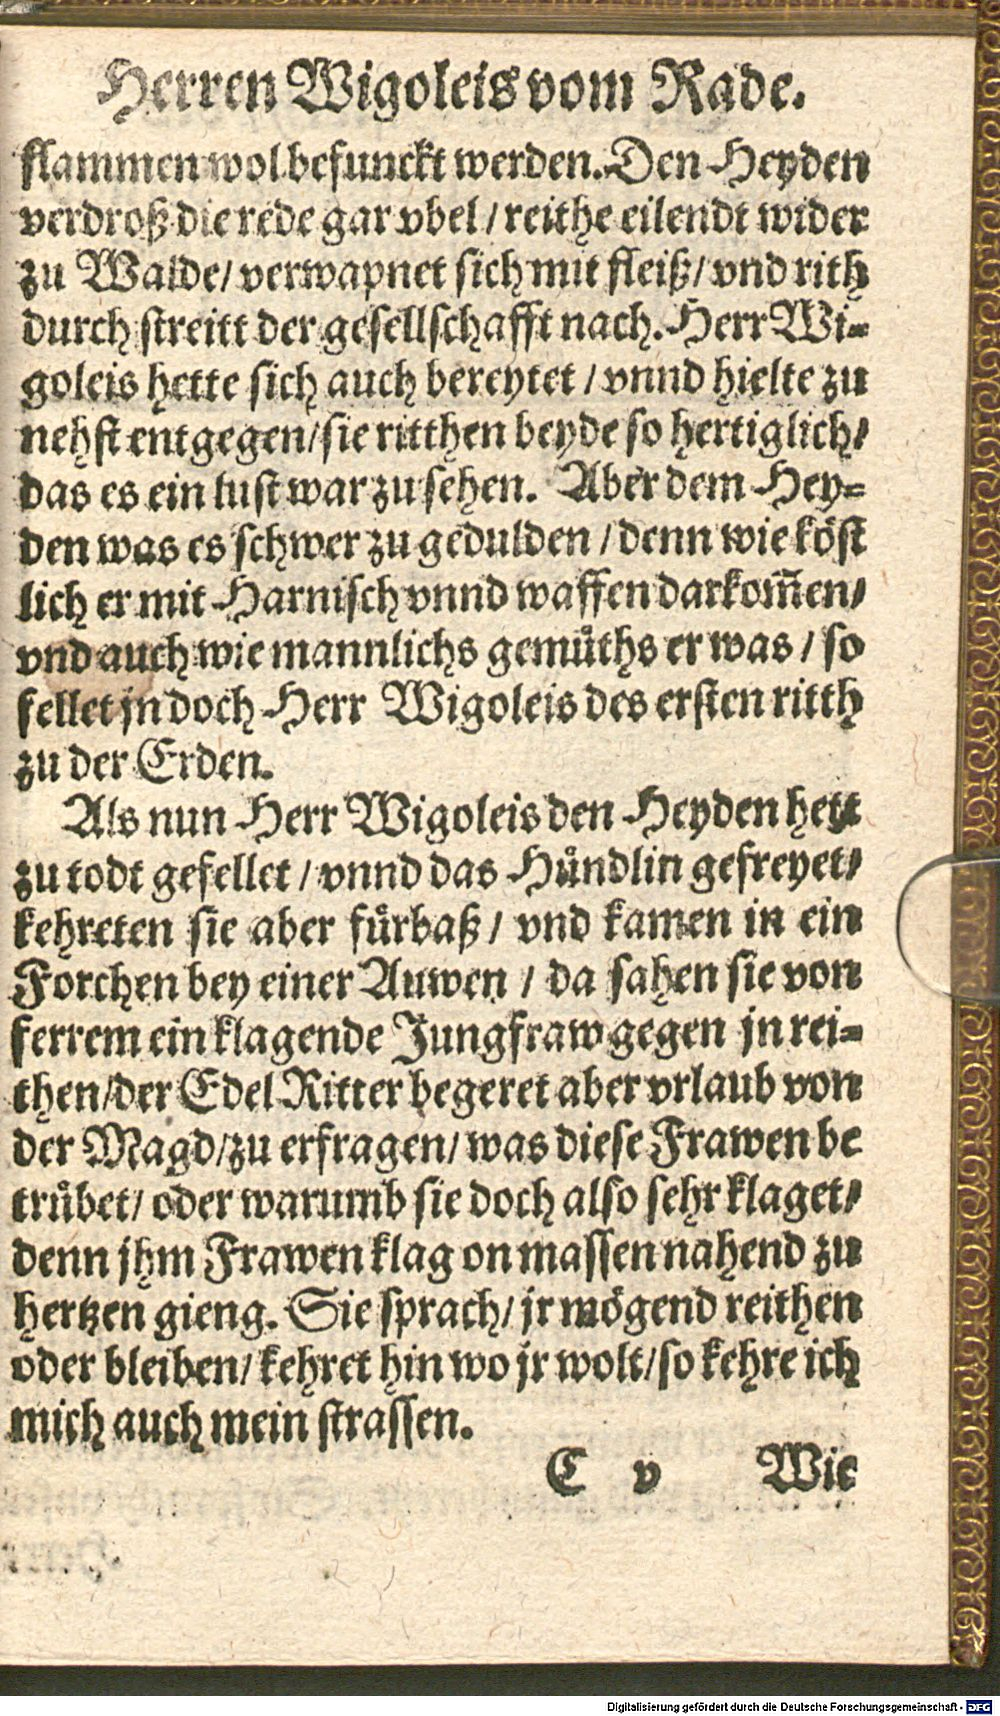 Herren Wigoleis vom Rade.
flammen wol befunckt werden. Den Heyden
verdroß die rede gar vbel / reithe eilendt wider
zu Walde / verwapnet sich mit fleiß / vnd rith
durch streitt der gesellschafft nach. Herr Wi-
goleis hette sich auch bereytet / vnnd hielte zu
nehst entgegen / sie ritthen beyde so hertiglich /
das es ein lust war zu sehen. Aber dem Hey-
den was es schwer zu gedulden / denn wie köst
lich er mit Harnisch vnnd waffen darkom̃en /
vnd auch wie mannlichs gemuͤths er was / so
fellet jn doch Herr Wigoleis des ersten ritth
zu der Erden.
Als nun Herr Wigoleis den Heyden hett
zu todt gefellet / vnnd das Huͤndlin gefreyet /
kehreten sie aber fuͤrbaß / vnd kamen in ein
Forchen bey einer Auwen / da sahen sie von
ferrem ein klagende Jungfraw gegen jn rei-
then / der Edel Ritter begeret aber vrlaub von
der Magd / zu erfragen / was diese Frawen be
truͤbet / oder warumb sie doch also sehr klaget /
denn jhm Frawen klag on massen nahend zu
hertzen gieng. Sie sprach / jr moͤgend reithen
oder bleiben / kehret hin wo jr wolt / so kehre ich
mich auch mein strassen.
C v Wie
Digitalisierung gefördert durch die Deutsche Forschungsgemeinschaft - DFG